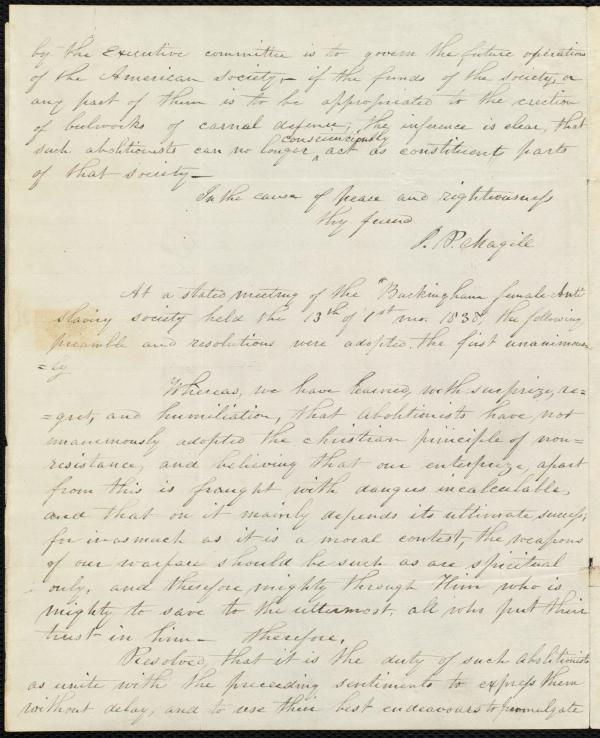 by the Executive committee is to govern the future operations
of the American Society,– if the funds of the society, or
any part of them is to be appropriated to the erection
of bulworks of carnal defence; the inference is clear, that
consciencious‌ly
such abolitionists can no longer ^ act as constituent parts
of that society–
In the cause of peace and righteousness
thy friend
P. P. Magill
At a stated meeting of the "Buckingham female Anti
slavery society held the 13th of 1st mo. 1838, the following
preamble and resolutions were adopted. the first unanimous-
=ly
Whereas, we have learned, with surprize, re=
=gret, and humiliation, that abolitionists have not
unanimously adopted the christian principle of non=
resistance, and believing that our enterprize, apart
from this is fraught with dangers incalculable,
and that on it mainly depends its ultimate success;
for inasmuch as it is a moral contest, the weapons
of our warfare should be such as are spiritual
only, and therefore mighty through Him who is
mighty to save to the uttermost, all who put their
trust in him– therefore,
Resolved, that it is the duty of such abolitionists
as unite with the preceeding sentiments to express them
without delay, and to use their best endeavours to promulgate